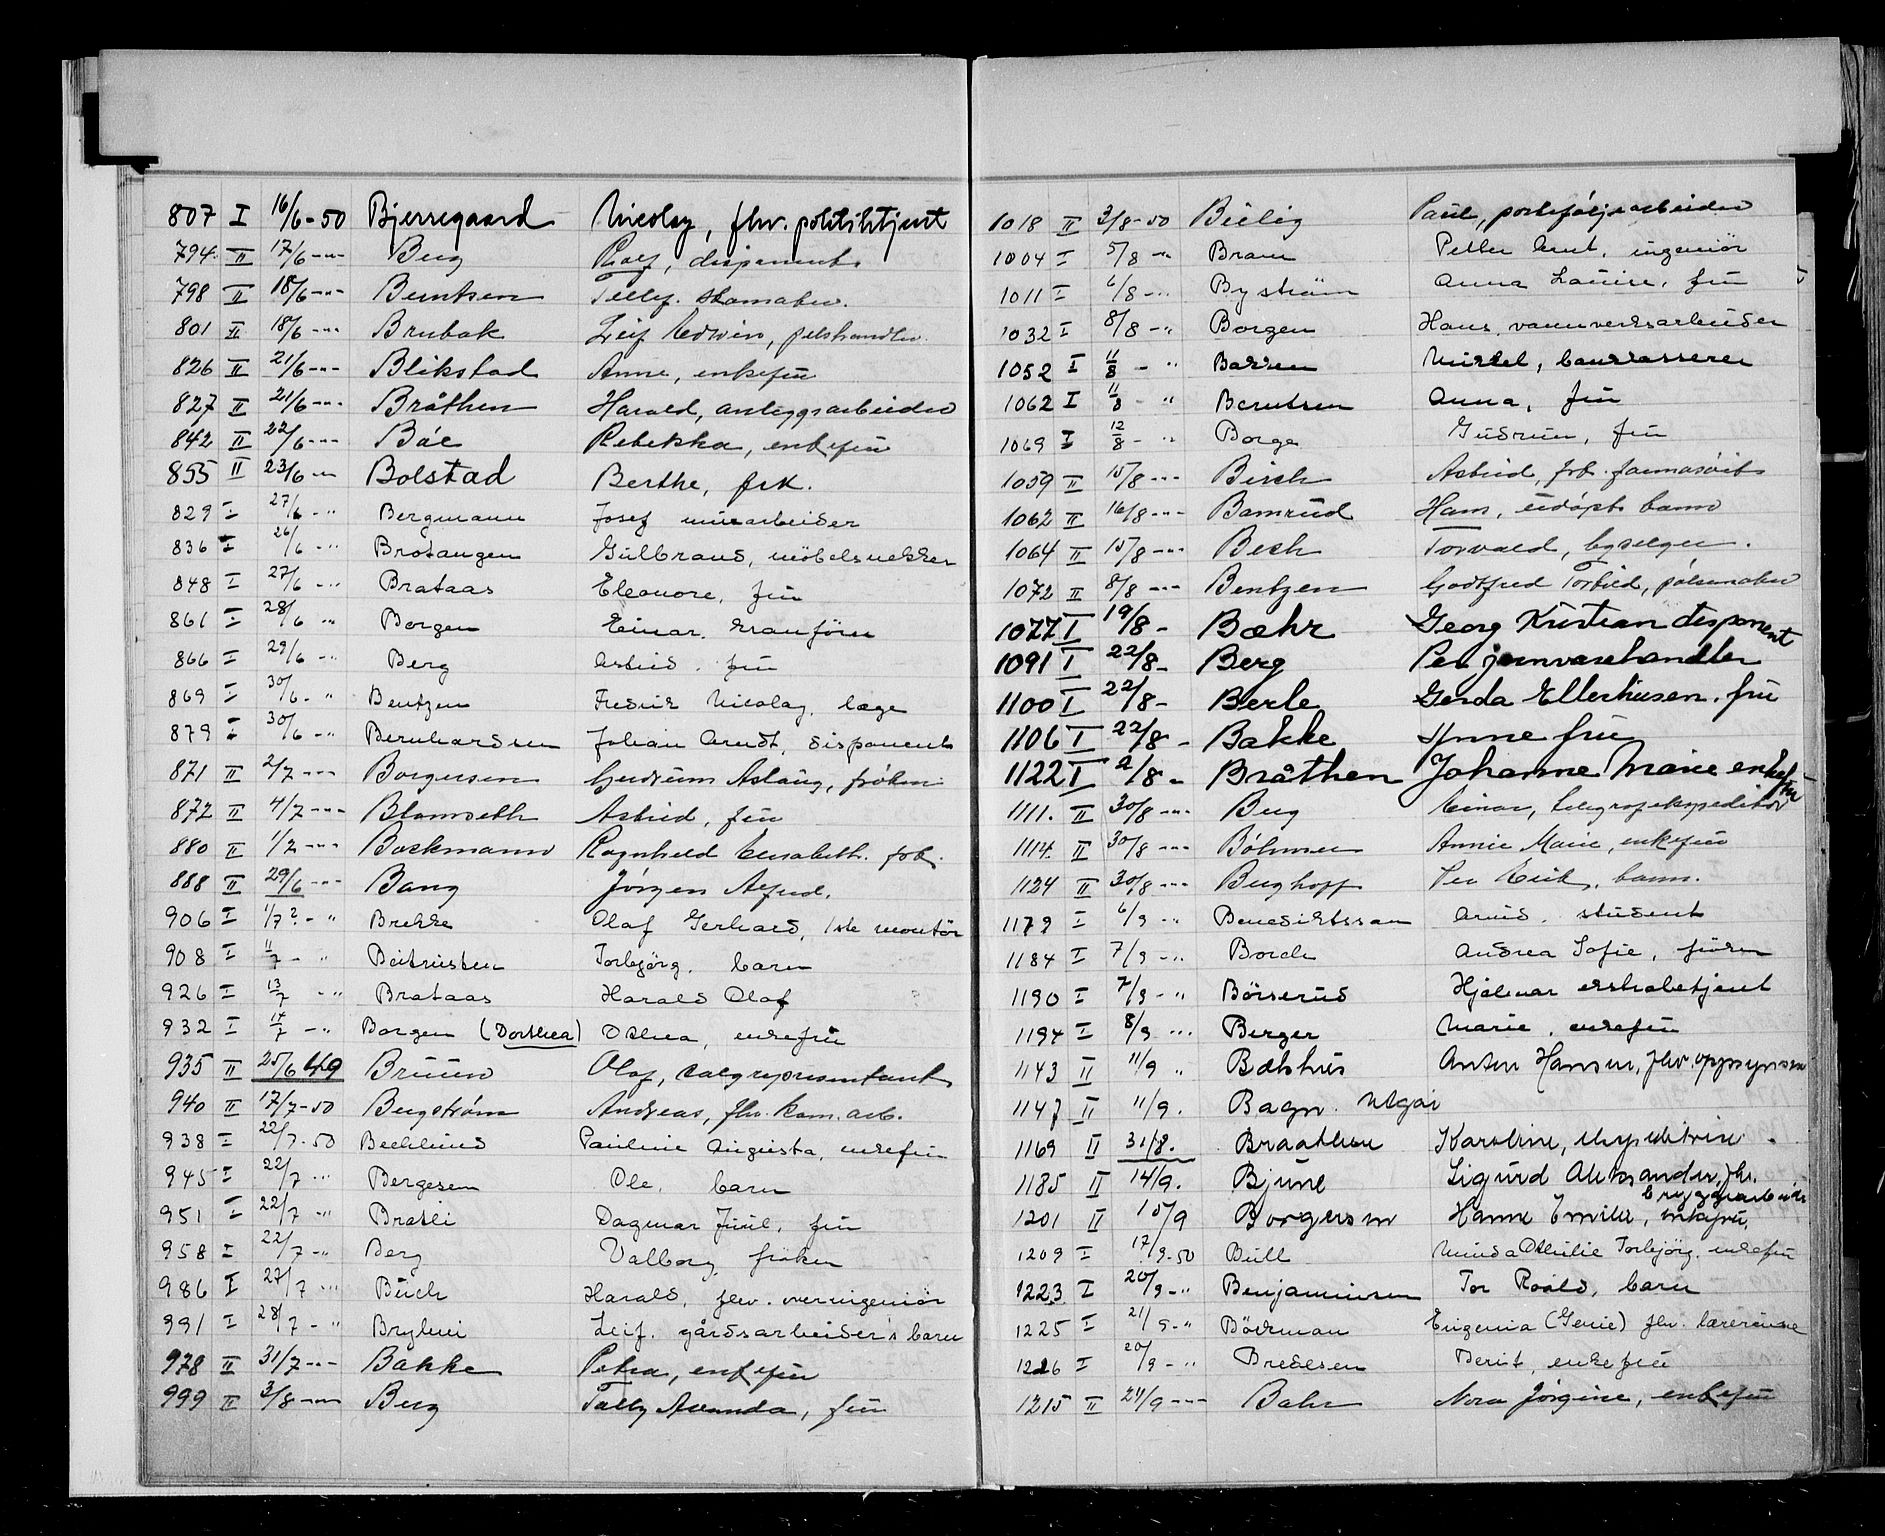 807 I 16/6-50 Bjerregaard Nicolay, fhv. politibtjent
794 II 17/6 -"- Berg Rolf, disponent
798 II 18/6 -"- Berntsen Tellef.
801 II 18/6 -"- Brubak Leif Edwin, pelshandler
826 II 21/6 -"- Blikstad Anne, enkefru
827 II 21/6 -"- Bråthen Harald, anleggsarbeider
842 II 22/6 -"- Bóe Rebekka, enkefru
855 II 23/6 -"- Bolstad Berthe, frk.
829 I 27/6 -" Bergmann Josef murarbeider
836 I 26/6 -" Brotangen Gulbrand, möbelsnekker
848 I 27/6 -" Brataas Eleonore, fru
861 I 28/6 " Borgen Einar. kranförer
866 I 29/6 -" Berg Astrid. fru
869 I 30/6 - " Bentzen Fredrik Nicolay. læge
879 I 30/6 -" Bernhardsen Johan Arndt, disponent
871 II 2/7 -"- Borgersen Gudrun Aslaug, frøken
872 II 4/7 -"- Blomseth Astrid, fru
880 II 1/7 -"- Bockmann Ragnhild Elisabeth. frk.
888 II 29/6 -"- Bang Jørgen Alfred.
906 I 1/7? - " Brekke Olaf Gerhard, 1ste montör
908 I 11/7 - " Torbjörg, barn
926 I 13/7 -" Brataas Harald Olaf
932 I 14/7 -" Borgen (Dorthea) Othea, enkefru
935 II 25/6 49 Bruun Olaf, salgrepresentant
940 II 17/7-50 Bergstrøm Andreas, fhv. kom. arb.
938 I 22/7-50 Bechlund Pauline Augusta, enkefru
945 I 22/7 -" Bergesen Ole, barn
951 I 22/7 -" Bratli Dagmar Juul, fru
958 I 22/7 -" Berg Valborg fröken
986 I 27/7 -" Buch Harald, fhv. overingeniör
991 I 28/7 - " Bryhni Leif. gårdsarbeider's barn
978 II 31/7 -"- Bakke Petra, enkefru
999 II 3/8 -"- Berg Tally Amanda, fru
1018 II 3/8-50 Bielig Paul, porteføljearbeider
1004 I 5/8 -" Bram Petter Arnt, ingeniör
1011 I 6/8 -" Byström Anna Louise, fru
1032 I 8/8 -" Borgen Hans. vannverksarbeider
1052 I 11/8 - " Bakken Mikkel, bankkasserer
1062 I 11/8 - " Berntsen Anna, fru
1069 I 12/8 - " Borge Gudrun, fru
1059 II 15/8 -"- Birch Astrid, frk.
1062 II 16/8 -"- Bamrud Hans, udöpt barn
1064 II 15/8 -"- Bech Torvald, byselger.
1072 II 8/8 -"- Bentzen Godtfred Torbild, pølsemaker
1077 I 19/8 - Bæhr Georg Kristian disponent
1091 I 22/8 - Berg Per jernvarehandler
1100 I 22/8 - Berle Gerda Ellerhusen. fru
1106 I 22/8 - Bakke Anne fru
1122 I 2/8 - Bråthen Johanne Marie enkefru
1111. II 30/8 -"- Berg Einar, telegrafekspeditør
1114 II 30/8 -"- Böhmer Annie Marie, enkefru
1124 II 30/8 -"- Berghoff Per Erik, barn.
1179 I 6/9 -" Benediktsson Arnd. student
1184 I 7/9 -" Borch Andrea Sofie, fröken
1190 I 7/9 - " Börserud Hjalmar ekstrabetjent
1194 I 8/9 -" Berger Marie, enkefru
1143 II 11/9 " Bækhus Anton Hansen, fhv. oppsynsm
1147 II 11/9. Bagn. Utgår
1169 II 31/8. Braathen Karoline, ekspeditrise.
1185 II 14/9. Bjune Sigurd Aleksander, fhv. bryggearbeider
1201 II 15/9 Borgersen Hanne Emilie, enkefru,
1209 I 17/9-50 Bull Minda Othilie Torbjörg. enkefru
1223 I 20/9 -" Benjaminsen Tor Roald, barn
1225 I 21/9 -" Böckman Eugenia (Genie) fhv. lærerinne
1226 I 20/9 - " Bredesen Berit, enkefru
1215 II 24/9 -"- Bahr Nora Jørgine, enkefru